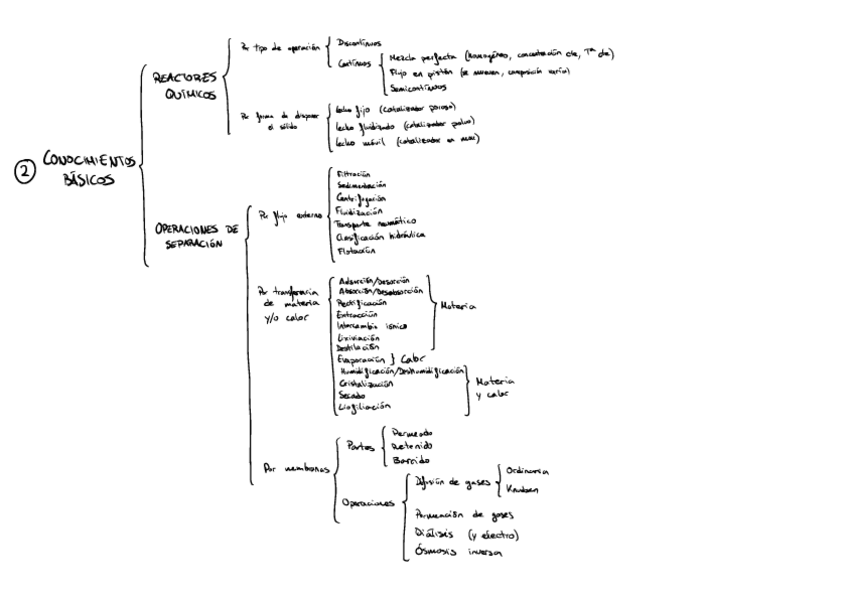 ② CONOCIMIENTOS
BÁSICOS
REACTORES
QUÍMICOS
Por tipo de operación
Discontinuos
Continuos
Mezcla perfecta (homogéneo, concentración cte, Tª cte)
Flujo en pistón (se mueven, composición varía)
Semicontinuos
Por forma de disponer
el sólido
Lecho fijo (catalizador poroso)
Lecho fluidizado (catalizador polvo)
Lecho móvil (catalizador en
OPERACIONES DE
SEPARACIÓN
Por flujo externo
Filtración
Sedimentación
Centrifugación
Fluidización
Transporte neumático
Clasificación hidráulica
Flotación
Por transferencia
de materia
y/o calor
Adsorción/Desorción
Absorción/Desabsorción
Rectificación
Extracción
Intercambio iónico
Lixiviación
Destilación
Materia
Evaporación } Calor
Humidificación/Deshumidificación
Cristalización
Secado
Liofilización
Materia
y calor
Por membranas
Partes
Permeado
Retenido
Barrido
Operaciones
Difusión de gases
Ordinaria
Knudsen
Permeación de gases
Diálisis (y electro)
Ósmosis inversa